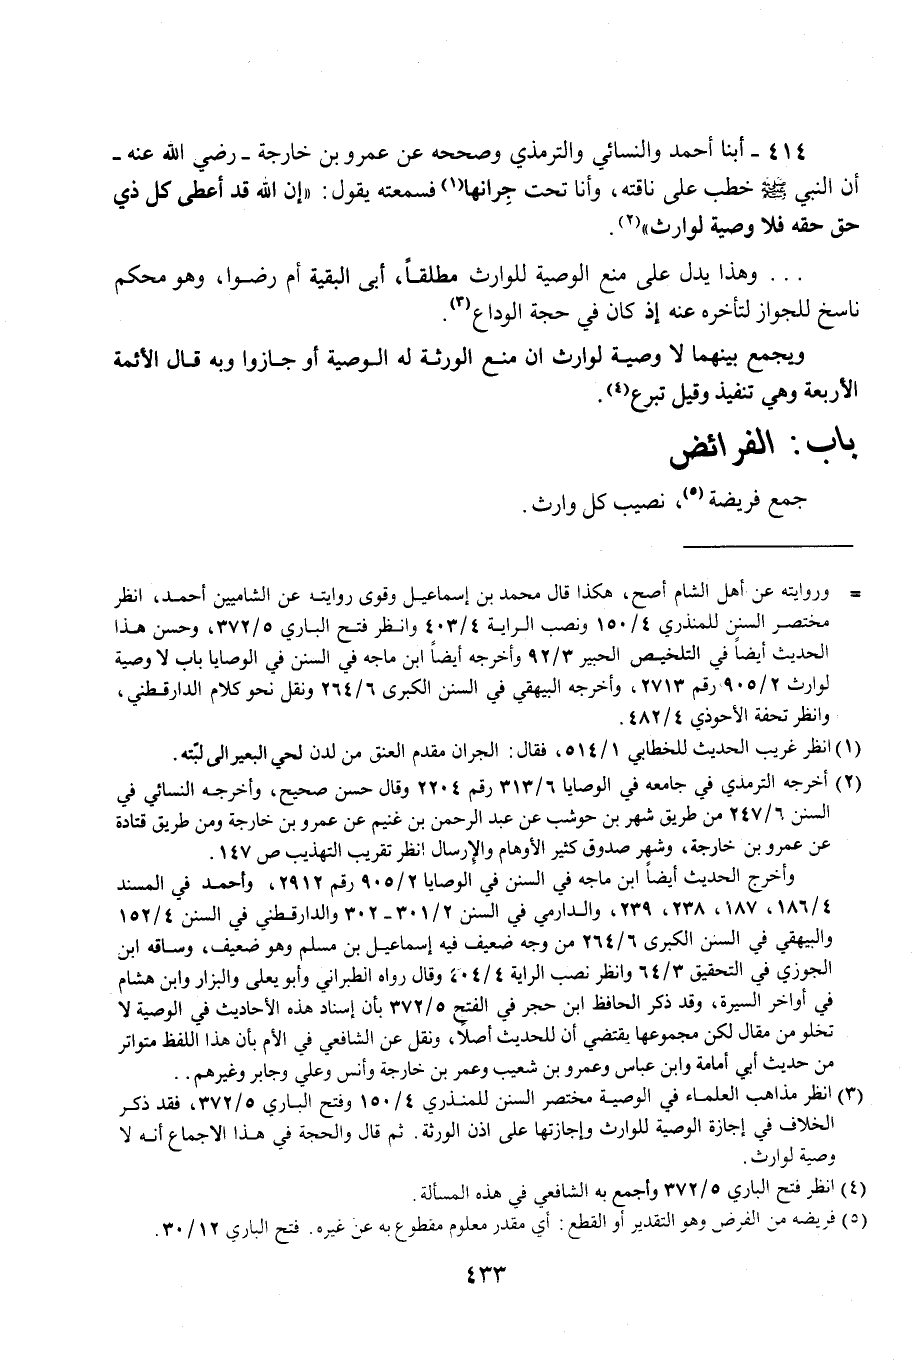 ٤١٤ ـ أبنا أحمد والنسائي والترمذي وصححه عن عمرو بن خارجة ـ رضي الله عنه ـ
أن النبي ﷺ خطب على ناقته، وأنا تحت جِرانها(١) فسمعته يقول: «إن الله قد أعطى كل ذي
حق حقه فلا وصية لوارث»(٢).
... وهذا يدل على منع الوصية للوارث مطلقاً، أبى البقية أم رضوا، وهو محكم
ناسخ للجواز لتأخره عنه إذ كان في حجة الوداع(٣).
ويجمع بينهما لا وصية لوارث ان منع الورثة له الوصية أو جازوا وبه قال الأئمة
الأربعة وهي تنفيذ وقيل تبرع(٤).
باب: الفرائض
جمع فريضة(٥)، نصيب كل وارث.
= وروايته عن أهل الشام أصح، هكذا قال محمد بن إسماعيل وقوى روايته عن الشاميين أحمد، انظر
مختصر السنن للمنذري ٤/ ١٥٠ ونصب الراية ٤/ ٤٠٣ وانظر فتح الباري ٥/ ٣٧٢، وحسن هذا
الحديث أيضاً في التلخيص الحبير ٣/ ٩٢ وأخرجه أيضاً ابن ماجه في السنن في الوصايا باب لا وصية
لوارث ٢/ ٩٠٥ رقم ٢٧١٣، وأخرجه البيهقي في السنن الكبرى ٦/ ٢٦٤ ونقل نحو كلام الدارقطني،
وانظر تحفة الأحوذي ٤/ ٤٨٢.
(١) انظر غريب الحديث للخطابي ١/ ٥١٤، فقال: الجران مقدم العنق من لدن لحي البعير الى لبّته.
(٢) أخرجه الترمذي في جامعه في الوصايا ٦/ ٣١٣ رقم ٢٢٠٤ وقال حسن صحيح، وأخرجه النسائي في
السنن ٦/ ٢٤٧ من طريق شهر بن حوشب عن عبد الرحمن بن غنيم عن عمرو بن خارجة ومن طريق قتادة
عن عمرو بن خارجة، وشهر صدوق كثير الأوهام والإرسال انظر تقريب التهذيب ص ١٤٧.
وأخرج الحديث أيضاً ابن ماجه في السنن في الوصايا ٢/ ٩٠٥ رقم ٢٩١٢، وأحمد في المسند
٤/ ١٨٦، ١٨٧، ٢٣٨، ٢٣٩، والدارمي في السنن ٢/ ٣٠١ ـ ٣٠٢ والدارقطني في السنن ٤/ ١٥٢
والبيهقي في السنن الكبرى ٦/ ٢٦٤ من وجه ضعيف فيه إسماعيل بن مسلم وهو ضعيف، وساقه ابن
الجوزي في التحقيق ٣/ ٦٤ وانظر نصب الراية ٤/ ٤٠٤ وقال رواه الطبراني وأبو يعلى والبزار وابن هشام
في أواخر السيرة، وقد ذكر الحافظ ابن حجر في الفتح ٥/ ٣٧٢ بأن إسناد هذه الأحاديث في الوصية لا
تخلو من مقال لكن مجموعها يقتضي أن للحديث أصلاً، ونقل عن الشافعي في الأم بأن هذا اللفظ متواتر
من حديث أبي أمامة وابن عباس وعمرو بن شعيب وعمر بن خارجة وأنس وعلي وجابر وغيرهم..
(٣) انظر مذاهب العلماء في الوصية مختصر السنن للمنذري ٤/ ١٥٠ وفتح الباري ٥/ ٣٧٢، فقد ذكر
الخلاف في إجازة الوصية للوارث وإجازتها على اذن الورثة. ثم قال والحجة في هذا الاجماع أنه لا
وصية لوارث.
(٤) انظر فتح الباري ٥/ ٣٧٢ وأجمع به الشافعي في هذه المسألة.
(٥) فريضه من الفرض وهو التقدير أو القطع: أي مقدر معلوم مقطوع به عن غيره. فتح الباري ١٢/ ٣٠.
٤٣٣